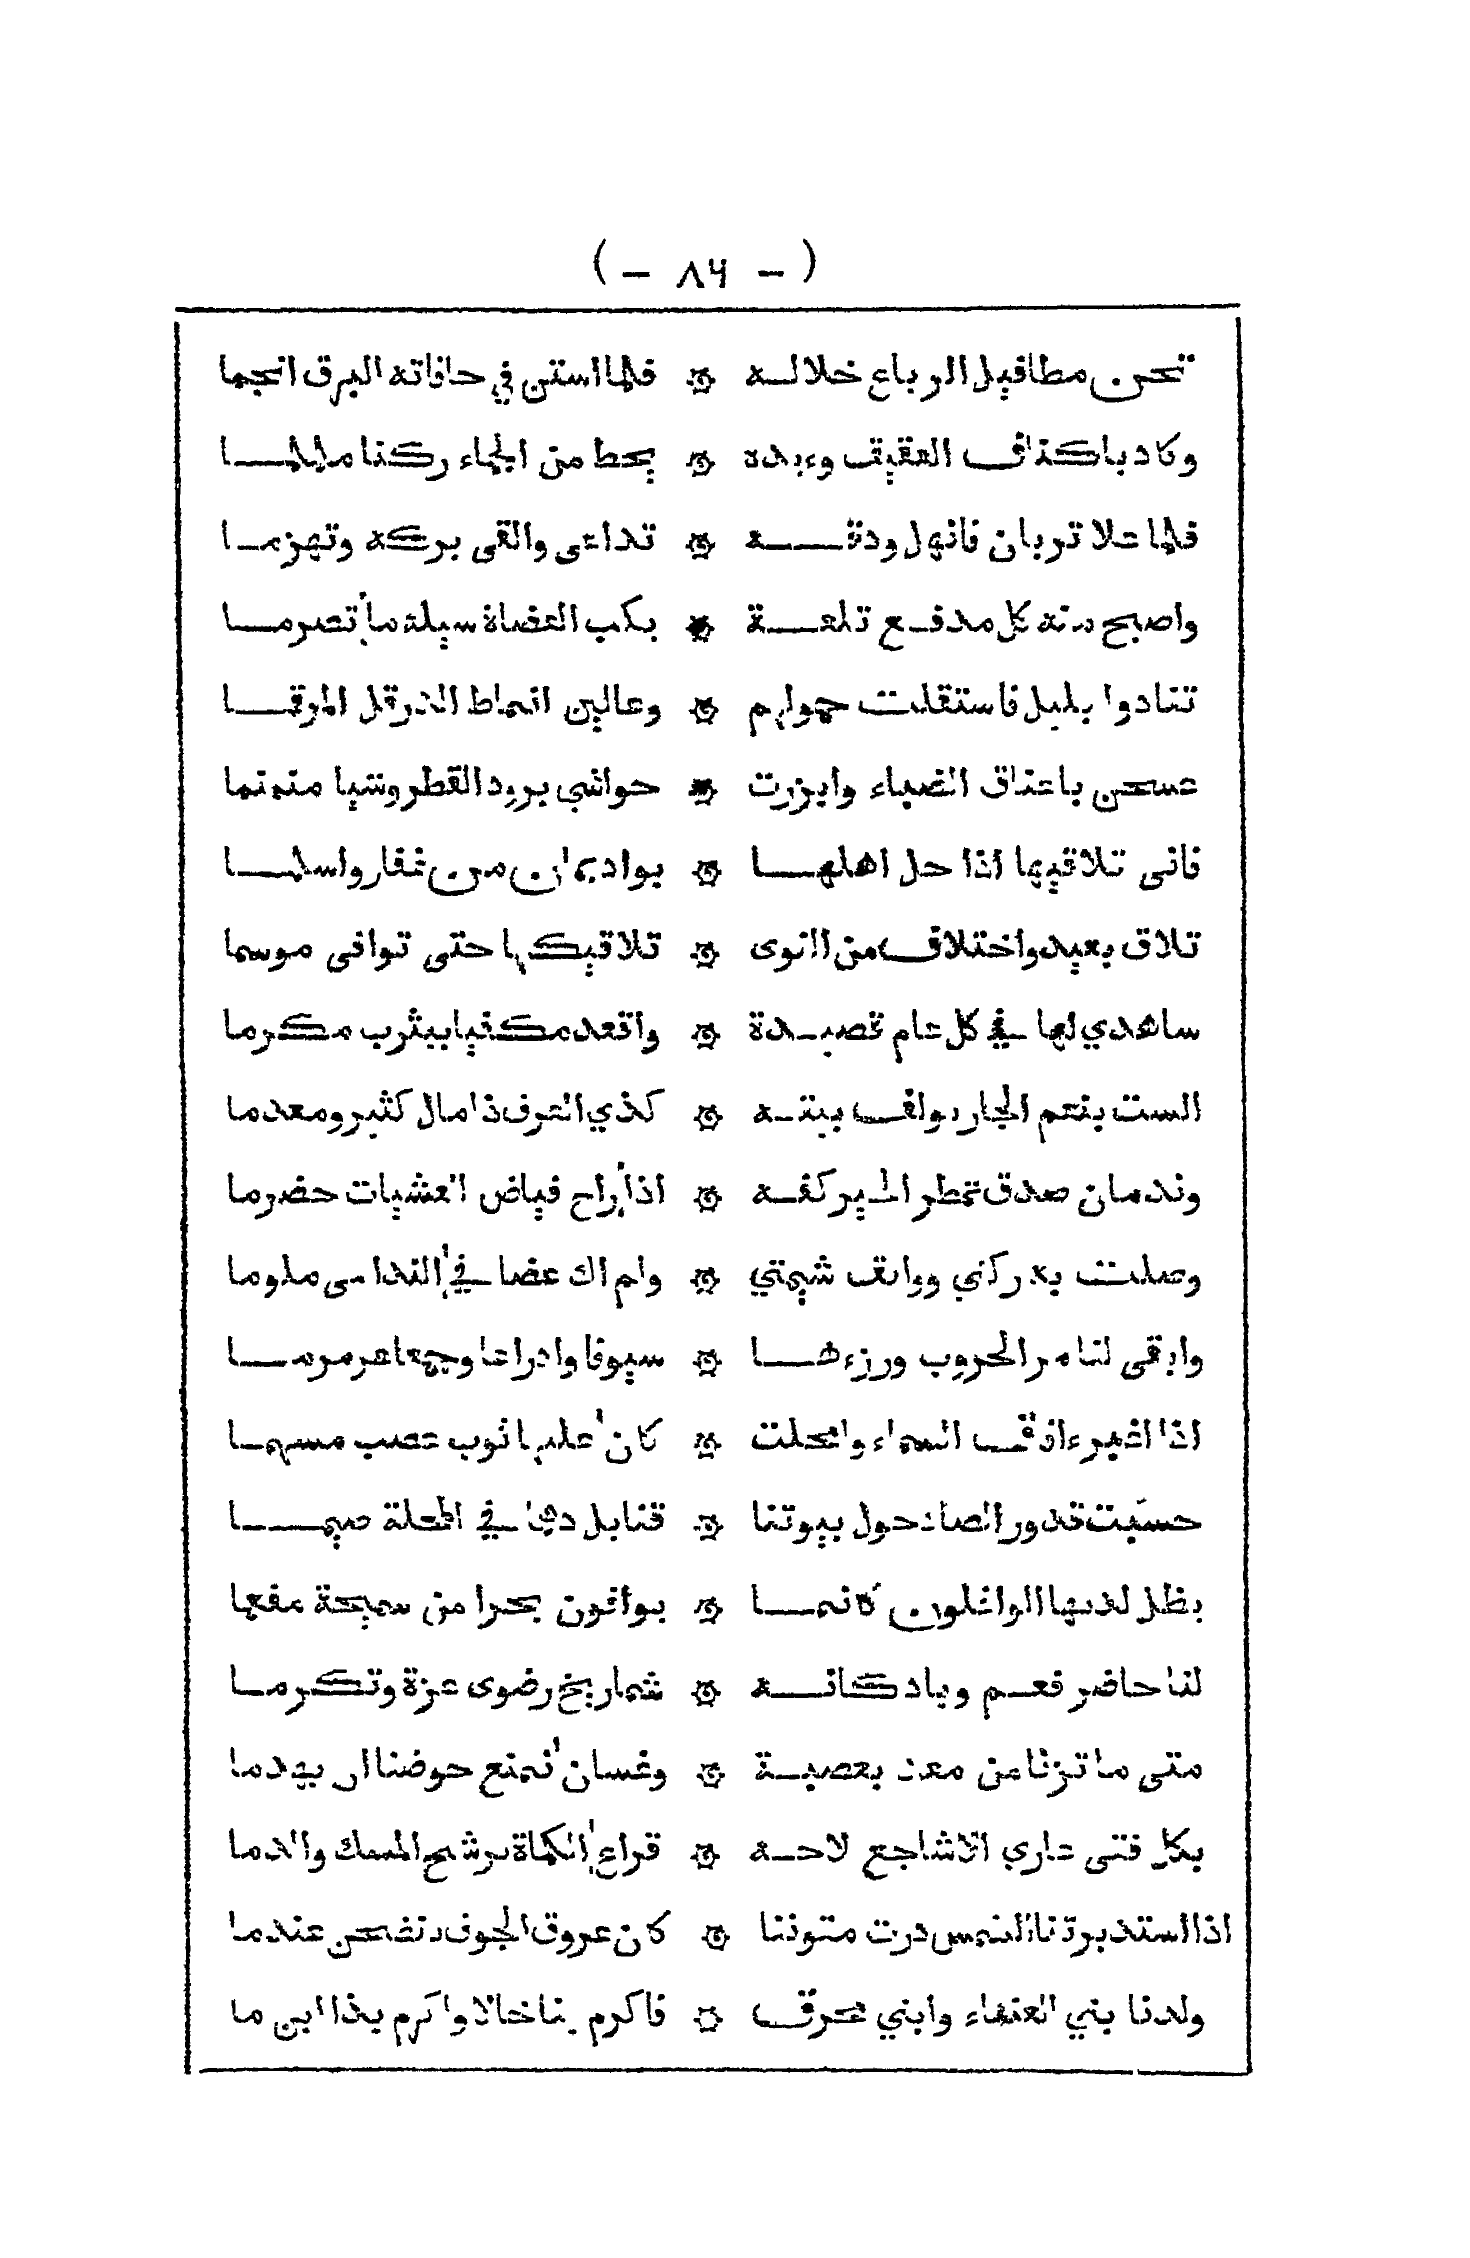 ( - ٨٦ - )
تحن مطافيل الرباع خلاله ۞ فلما استن في حافاته البرق اثجما
وكاد باكناف العقيق وئيده ۞ يحط من الجماء ركنا ململما
فلما علا تربان فانهل ودقه ۞ تداعى والقى بركه وتهزما
واصبح منه كل مدفع تلعة ۞ يكب العضاة سيله ما تصرما
تنادوا بليل فاستقلت حمولهم ۞ وعالين انماط الدرقل المرقما
عسجن باعناق الظباء وابرزت ۞ حواشي برود القطر وشيا منمنما
فانى تلاقيها اذا حل اهلها ۞ بواد يمان من غفار واسلما
تلاق بعيد واختلاف من النوى ۞ تلاقيكها حتى توافى موسما
ساهدي لها في كل عام قصيدة ۞ واقعد مكفيا بيثرب مكرما
الست بنعم الجار يولف بيته ۞ كذي العرف ذا مال كثير ومعدما
وندمان صدق تمطر الخير كفه ۞ اذا راح فياض العشيات خضرما
وصلت به ركني ووافق شيمتي ۞ ولم اك عضا في الندامى ملوما
وابقى لنا مر الحروب ورزءها ۞ سيوفا وادراعا وجمعا عرمرما
اذا اغبر ءافاق السماء وامحلت ۞ كان عليها ثوب عصب مسهما
حسبت قدور الصاد حول بيوتنا ۞ قنابل دهما في المحلة صيما
يظل لديها الواغلون كانما ۞ يوافون بحرا من سميحة مفعما
لنا حاضر فعم وباد كانه ۞ شماريخ رضوى عزة وتكرما
متى ما تزنا من معد بعصبة ۞ وغسان نمنع حوضنا ان يهدما
بكل فتى عاري الاشاجع لاحه ۞ قراع الكماة يرشح المسك والدما
اذا استدبرتنا الشمس درت متوننا ۞ كان عروق الجوف ينضحن عندما
ولدنا بني العنقاء وابني محرق ۞ فاكرم بنا خالا واكرم بذا ابن ما